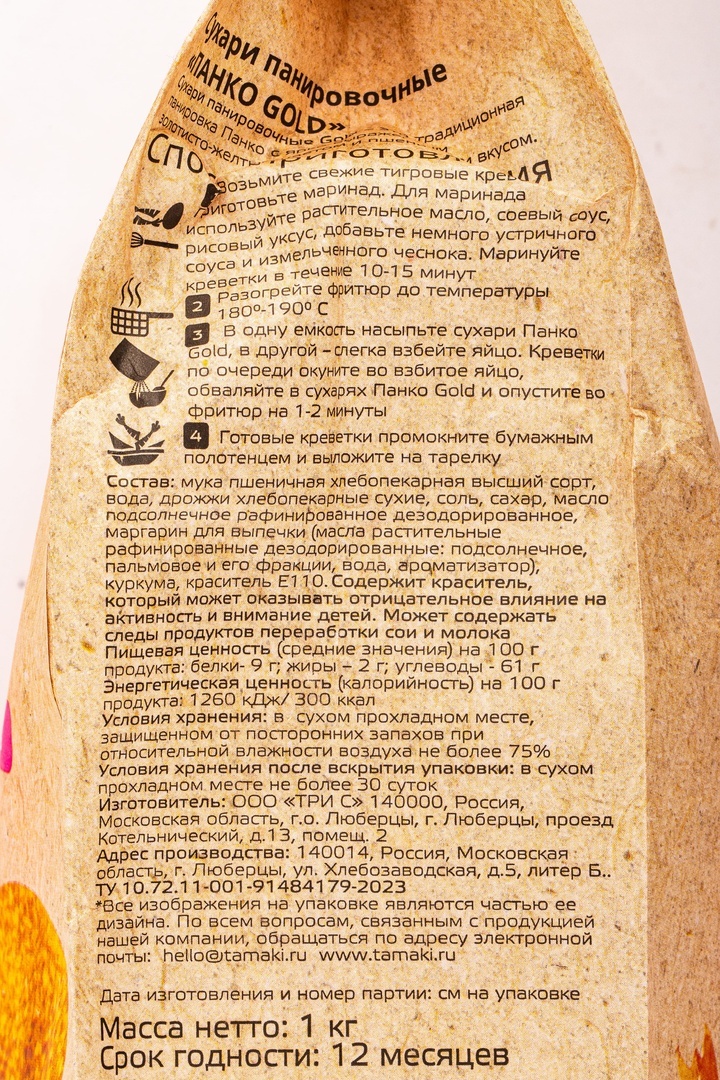 Сухари панировочные
«ПАНКО GOLD»
Сухари панировочные Gold традиционная
панировка Панко с
золотисто-желтым вкусом.
Возьмите свежие тигровые
приготовьте маринад. Для маринада
используйте растительное масло, соевый соус,
рисовый уксус, добавьте немного устричного
соуса и измельченного чеснока. Маринуйте
креветки в течение 10-15 минут
2 Разогрейте фритюр до температуры
180º-190º С
3 В одну емкость насыпьте сухари Панко
Gold, в другой – слегка взбейте яйцо. Креветки
по очереди окуните во взбитое яйцо,
обваляйте в сухарях Панко Gold и опустите во
фритюр на 1-2 минуты
4 Готовые креветки промокните бумажным
полотенцем и выложите на тарелку
Состав: мука пшеничная хлебопекарная высший сорт,
вода, дрожжи хлебопекарные сухие, соль, сахар, масло
подсолнечное рафинированное дезодорированное,
маргарин для выпечки (масла растительные
рафинированные дезодорированные: подсолнечное,
пальмовое и его фракции, вода, ароматизатор),
куркума, краситель Е110. Содержит краситель,
который может оказывать отрицательное влияние на
активность и внимание детей. Может содержать
следы продуктов переработки сои и молока
Пищевая ценность (средние значения) на 100 г
продукта: белки- 9 г; жиры – 2 г; углеводы - 61 г
Энергетическая ценность (калорийность) на 100 г
продукта: 1260 кДж/ 300 ккал
Условия хранения: в сухом прохладном месте,
защищенном от посторонних запахов при
относительной влажности воздуха не более 75%
Условия хранения после вскрытия упаковки: в сухом
прохладном месте не более 30 суток
Изготовитель: ООО «ТРИ С» 140000, Россия,
Московская область, г.о. Люберцы, г. Люберцы, проезд
Котельнический, д.13, помещ. 2
Адрес производства: 140014, Россия, Московская
область, г. Люберцы, ул. Хлебозаводская, д.5, литер Б..
ТУ 10.72.11-001-91484179-2023
*Все изображения на упаковке являются частью ее
дизайна. По всем вопросам, связанным с продукцией
нашей компании, обращаться по адресу электронной
почты: hello@tamaki.ru www.tamaki.ru
Дата изготовления и номер партии: см на упаковке
Масса нетто: 1 кг
Срок годности: 12 месяцев